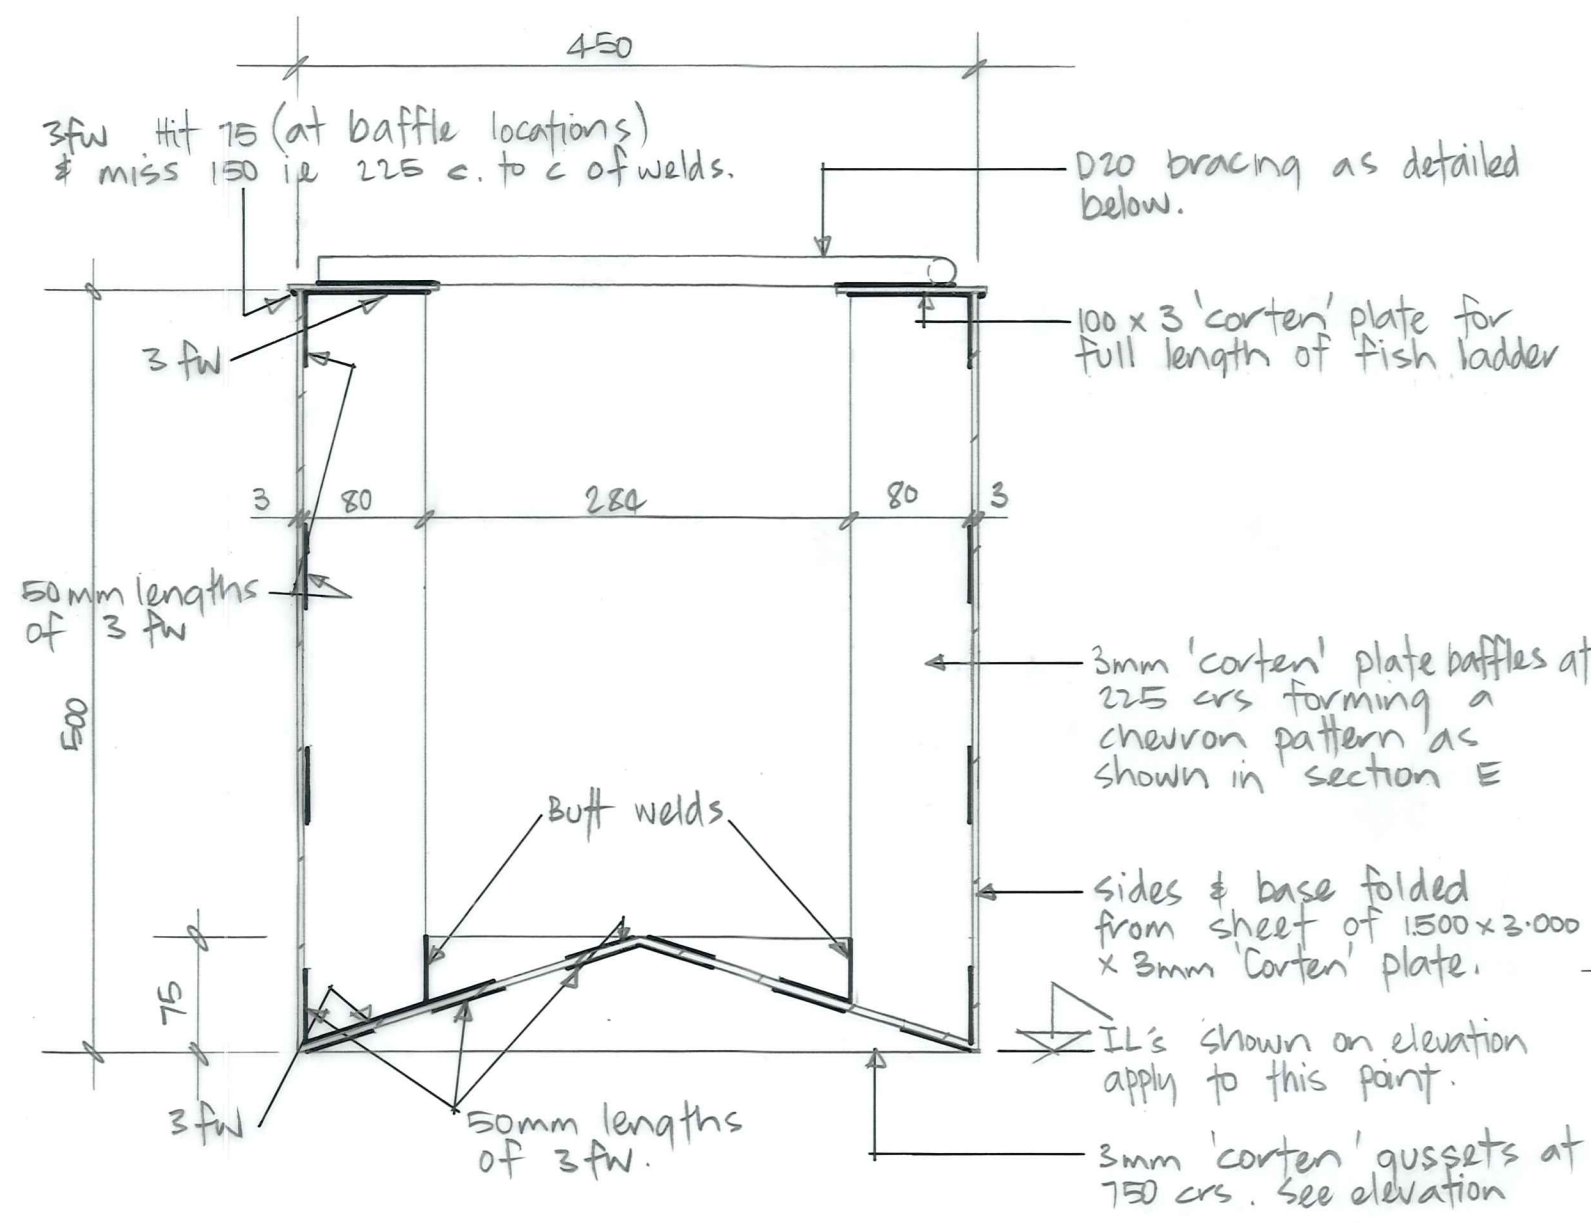 450
3fw Hit 75 (at baffle locations)
& miss 150 ie 225 c. to c of welds.
D20 bracing as detailed
below.
100 x 3 'corten' plate for
full length of fish ladder
3 fw
3 80 284 80 3
50mm lengths
of 3 fw
500
3mm 'corten' plate baffles at
225 crs forming a
chevron pattern as
shown in section E
Butt welds
sides & base folded
from sheet of 1.500 x 3.000
x 3mm 'Corten' plate.
75
IL's shown on elevation
apply to this point.
3 fw
50mm lengths
of 3 fw.
3mm 'corten' gussets at
750 crs. See elevation